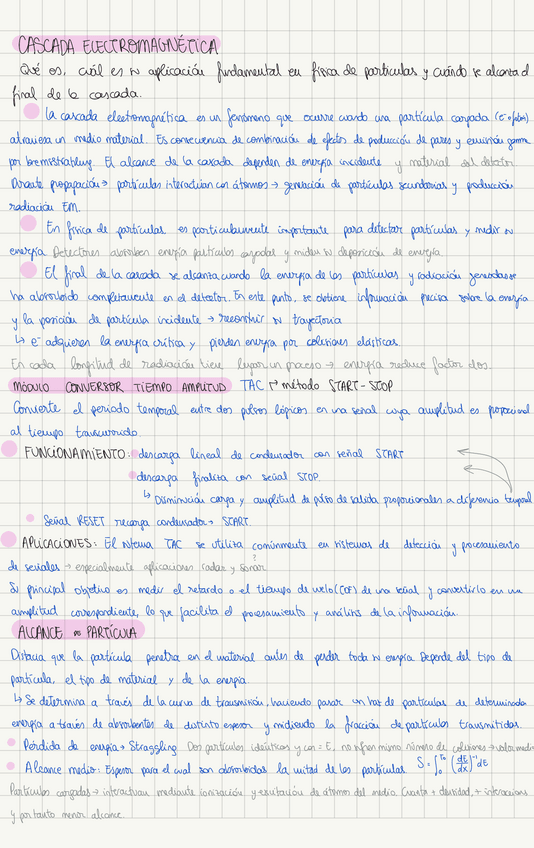 CASCADA ELECTROMAGNÉTICA
Qué es, cuál es su aplicación fundamental en física de partículas y cuándo se alcanza el
final de la cascada.
La cascada electromagnética es un fenómeno que ocurre cuando una partícula cargada (e⁻ o fotón)
atraviesa un medio material. Es consecuencia de combinación de efectos de producción de pares y emisión gamma
por bremsstrahlung. El alcance de la cascada dependen de energía incidente y material del detector
Durante propagación → partículas interactúan con átomos → generación de partículas secundarias y producción
radiación EM.
En física de partículas es particularmente importante para detectar partículas y medir su
energía Detectores absorben energía partículas cargadas y miden su deposición de energía.
El final de la cascada se alcanza cuando la energía de las partículas y radiación generadas se
ha absorbido completamente en el detector. En este punto, se obtiene información precisa sobre la energía
y la posición de partícula incidente → reconstruir su trayectoria
↳ e⁻ adquieren la energía crítica y pierden energía por colisiones elásticas.
En cada longitud de radiación tiene lugar un proceso → energía reduce factor dos.
MÓDULO CONVERSOR TIEMPO AMPLITUD TAC → método START-STOP
Convierte el periodo temporal entre dos pulsos lógicos en una señal cuya amplitud es proporcional
al tiempo transcurrido.
FUNCIONAMIENTO: descarga lineal de condensador con señal START
descarga finaliza con señal STOP
↳ Disminución carga y amplitud de pulso de salida proporcionales a diferencia temporal
Señal RESET recarga condensador → START.
APLICACIONES: El sistema TAC se utiliza comúnmente en sistemas de detección y procesamiento
de señales → especialmente aplicaciones radar y sonar
Su principal objetivo es medir el retardo o el tiempo de vuelo (TOF) de una señal y convertirlo en una
amplitud correspondiente, lo que facilita el procesamiento y análisis de la información.
ALCANCE PARTÍCULA
Distancia que la partícula penetra en el material antes de perder toda su energía Depende del tipo de
partícula, el tipo de material y de la energía.
↳ Se determina a través de la curva de transmisión, haciendo pasar un haz de partículas de determinada
energía a través de absorbentes de distinto espesor y midiendo la fracción de partículas transmitidas.
Pérdida de energía → Straggling Dos partículas idénticas y con = E, no sufren mismo número de colisiones → valor medio
Alcance medio: Espesor para el cual son absorbidas la mitad de las partículas S = ∫₀^T₀ (dE/dx)⁻¹ dE
Partículas cargadas → interactúan mediante ionización y excitación de átomos del medio. Cuanta + densidad, + interacciones
y por tanto menor alcance